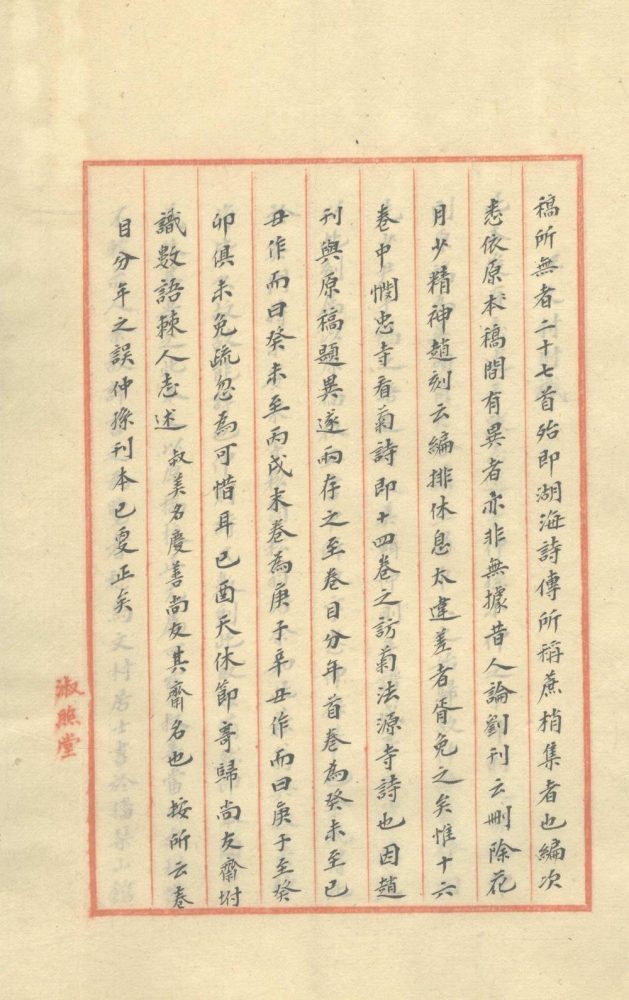 稿所無者二十七首殆即湖海詩傳所稱蔗梢集者也編次
悉依原本稿間有異者亦非無據昔人論劉刊云刪除花
月少精神趙刻云編排休息太違差者胥免之矣惟十六
卷中憫忠寺看菊詩即十四卷之訪菊法源寺詩也因趙
刊與原稿題異遂兩存之至卷目分年首卷為癸未至己
丑作而曰癸未至丙戌末卷為庚子辛丑作而曰庚子至癸
卯俱未免疏忽為可惜耳己酉天休節寄歸尚友齋坿
識數語棘人志述 叔美名慶善尚友其齋名也按所云卷
目分年之誤仲孫刊本已更正矣
淑照堂